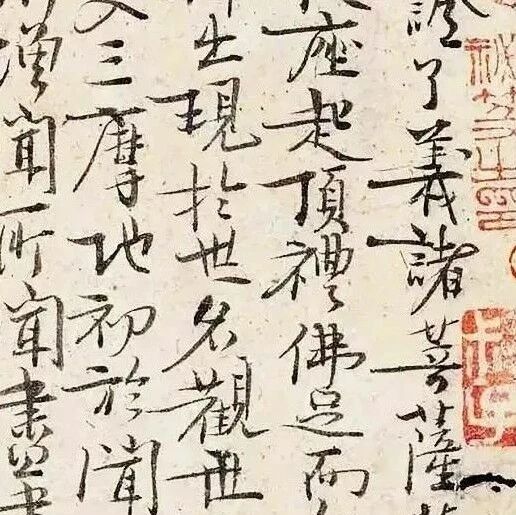 證了義諸菩薩
座起頂禮佛足而
出現於世名觀世
入三摩地初於聞
增聞所聞盡